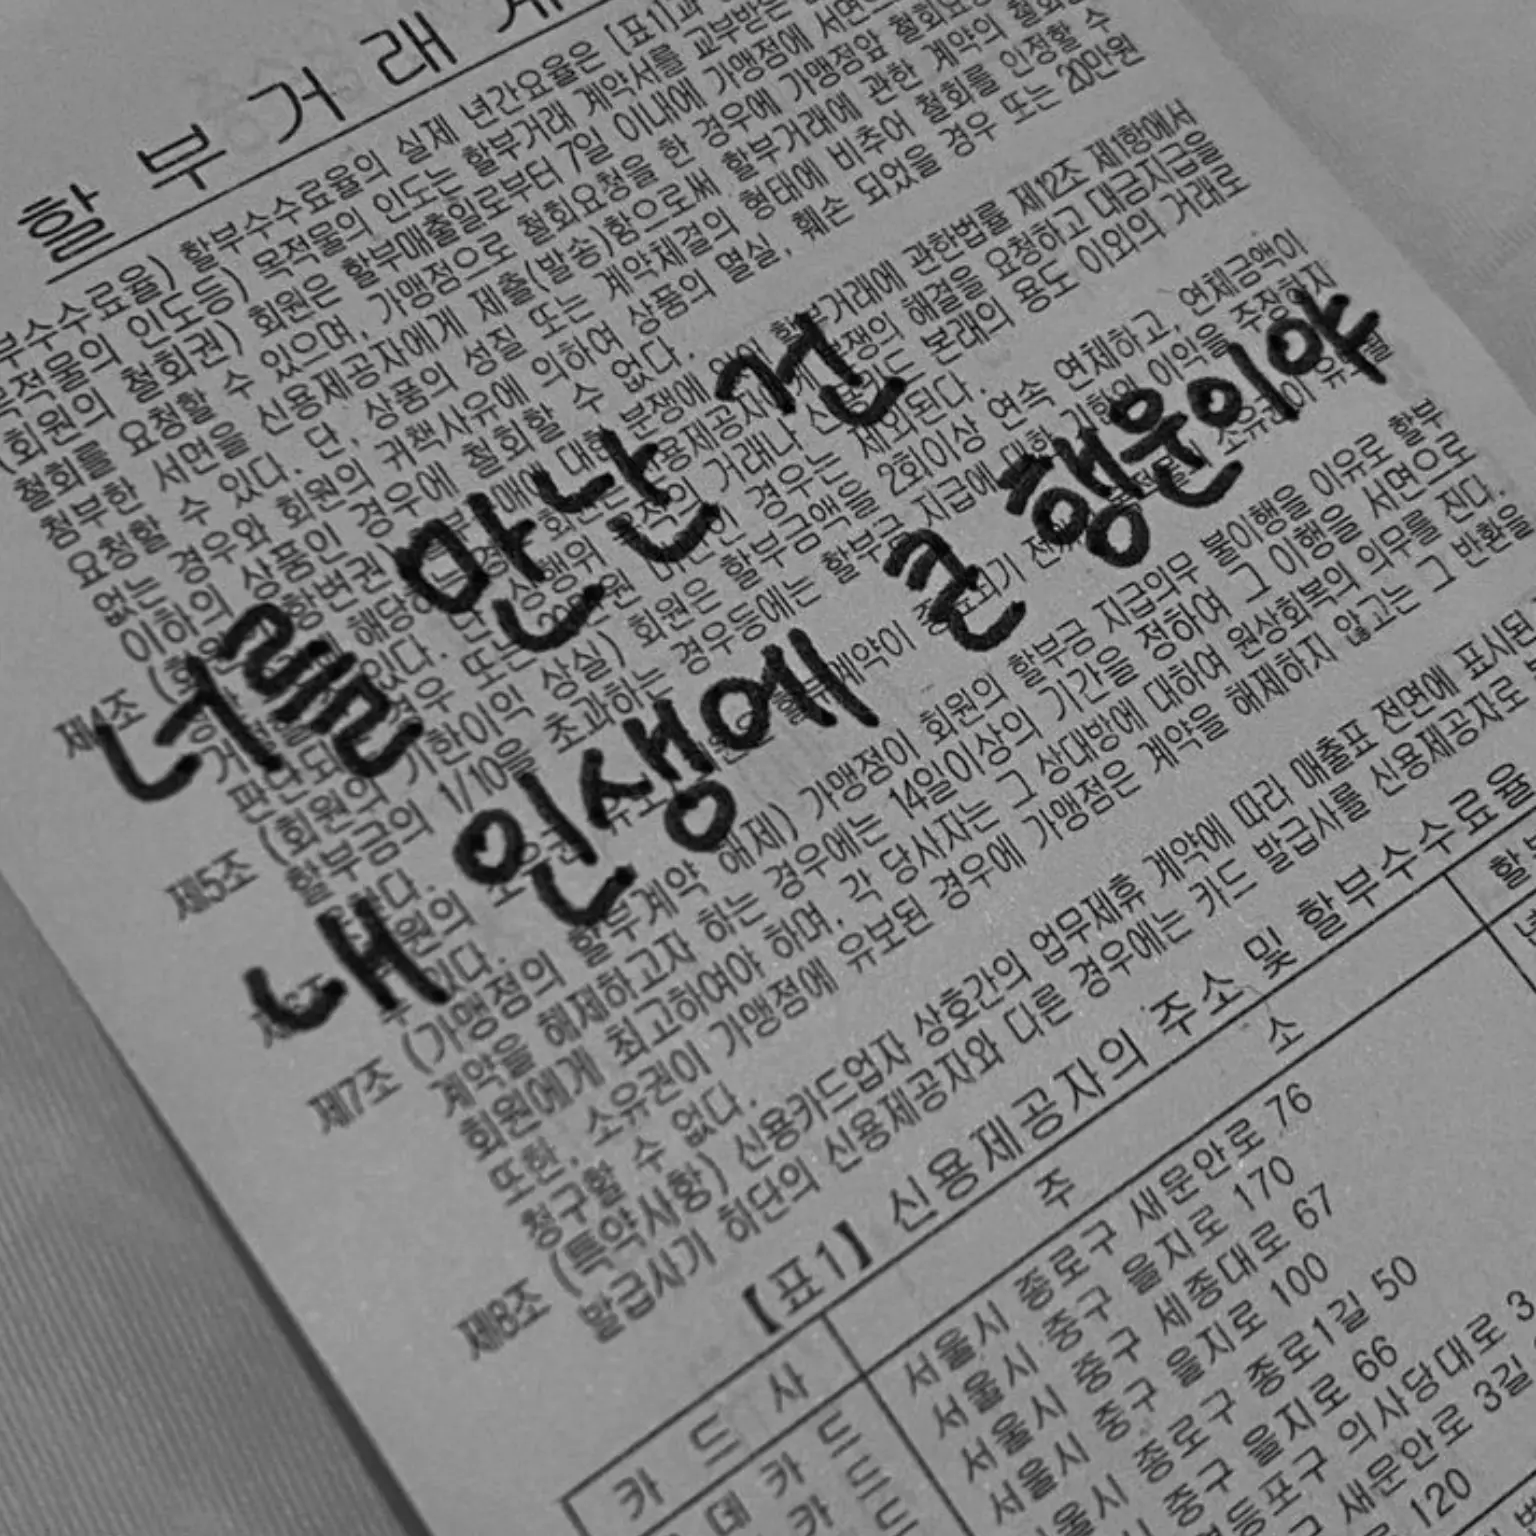 할 부 거 래 계
수수료율) 할부수수료율의 실제 년간요율은 [표1]과
목적물의 인도 등) 목적물의 인도는 할부거래 계약서를 교부받는
(회원의 철회권) 회원은 할부매출일로부터 7일 이내에 가맹점에 서면으로
철회를 요청할 수 있으며, 가맹점으로 철회요청을 한 경우에 가맹점앞 철회요청
첨부한 서면을 신용제공자에게 제출(발송)함으로써 할부거래에 관한 계약의 철회
요청할 수 있다. 단, 상품의 성질 또는 계약체결의 형태에 비추어 철회를 인정할 수
없는 경우와 회원의 귀책사유에 의하여 상품의 멸실, 훼손 되었을 경우 또는 20만원
이하의 상품인 경우에 철회할 수 없다.
제4조 관한법률 제12조 제1항에서
분쟁의 해결을 요청하고 대금지급을
거래나 본래의 용도 이외의 거래로
판단되 경우는 제외된다.
제5조 (회원의 기한이익 상실) 회원은 할부금액을 2회이상 연속 연체하고, 연체금액이
할부금의 1/10을 초과하는 경우등에는 할부금 지급에 대한 기한의 이익을 주장하지
제7조 (가맹점의 할부계약 해제) 가맹점이 회원의 할부금 지급의무 불이행을 이유로 할부
계약을 해제하고자 하는 경우에는 14일이상의 기간을 정하여 그 이행을 서면으로
회원에게 최고하여야 하며, 각 당사자는 그 상대방에 대하여 원상회복의 의무를 진다.
또한, 소유권이 가맹점에 유보된 경우에 가맹점은 계약을 해제하지 않고는 그 반환을
청구할 수 없다.
제8조 (특약사항) 신용카드업자 상호간의 업무제휴 계약에 따라 매출표 전면에 표시된
발급사가 하단의 신용제공자와 다른 경우에는 카드 발급사를 신용제공자로
너를 만난 건
내 인생에 큰 행운이야
【표1】 신용제공자의 주소 및 할부수수료율
카 드 사 주 소
서울시 종로구 새문안로 76
서울시 중구 을지로 170
서울시 중구 세종대로 67
서울시 중구 을지로 100
서울시 종로구 종로1길 50
중구 을지로 66
영등포구 의사당대로 3
새문안로 3길
120